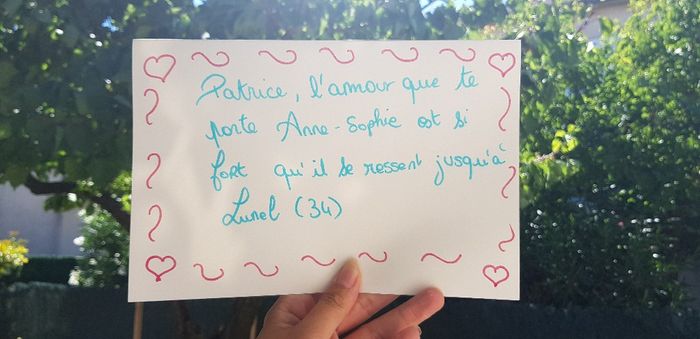 Patrice, l'amour que te
porte Anne-Sophie est si
fort qu'il se ressent jusqu'à
Lunel (34)